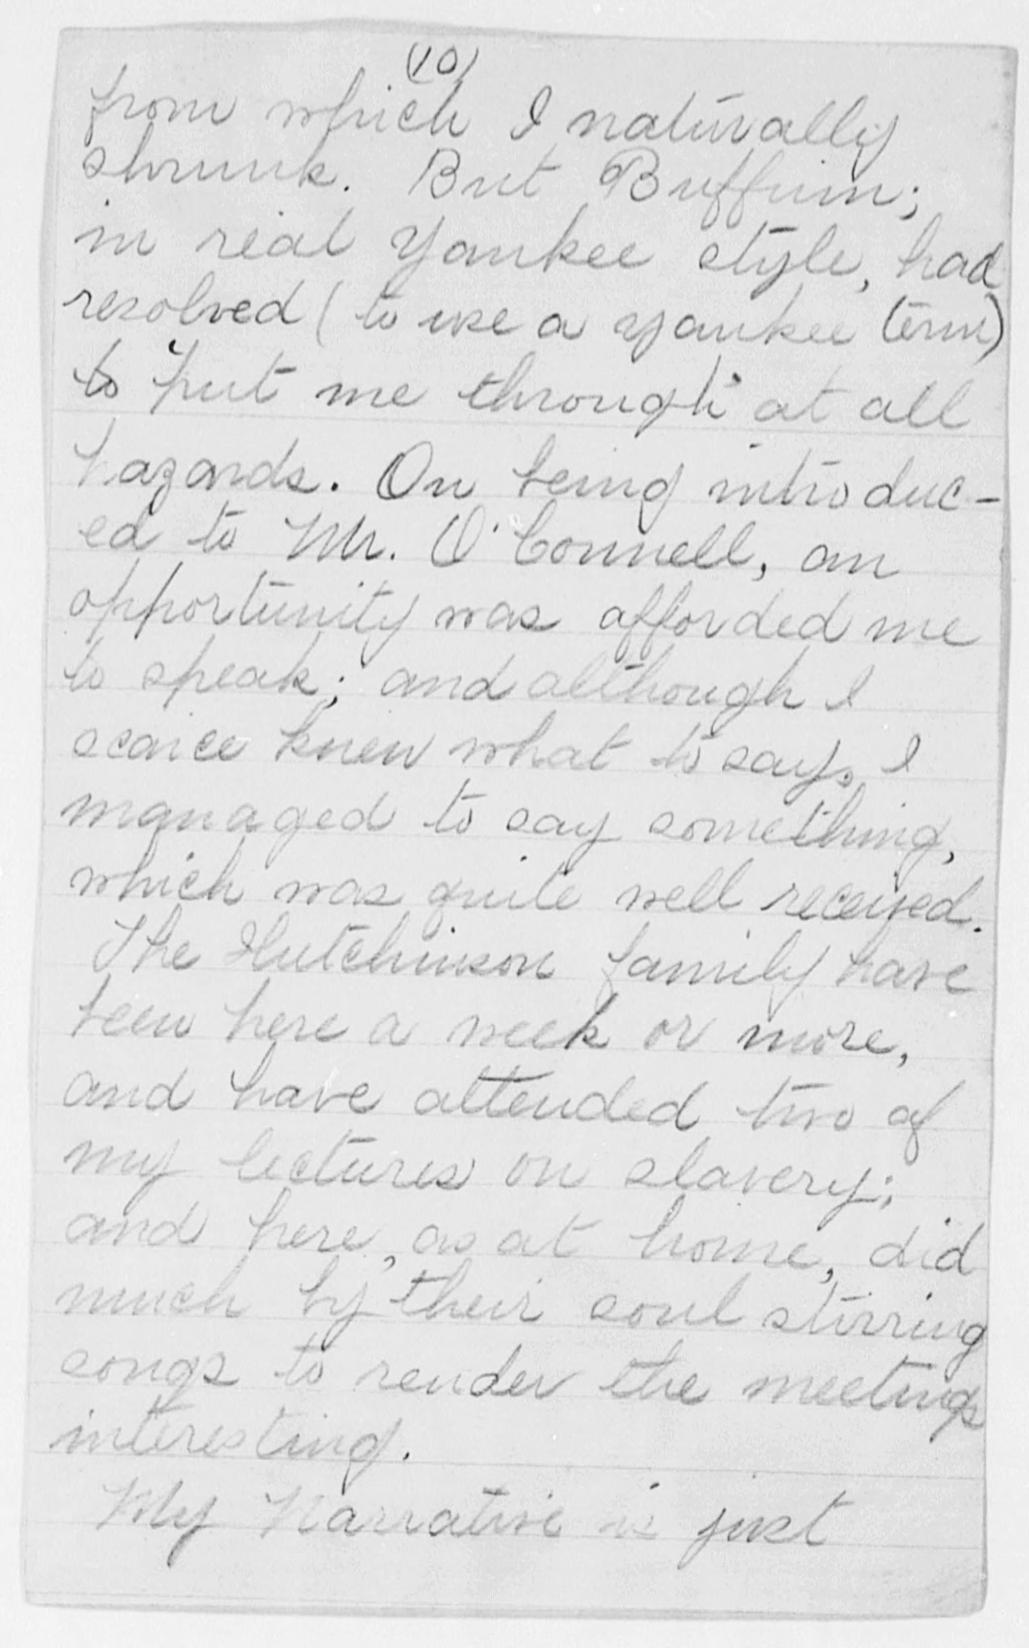 (10)
from which I naturally
shrunk. But Buffum;
in real Yankee style, had
resolved (to use a Yankee term)
to put me through" at all
hazards. On being introduc-
ed to Mr. O'Connell, an
opportunity was afforded me
to speak; and although I
scarce knew what to say, I
managed to say something,
which was quite well received.
The Hutchinson family have
been here a week or more,
and have attended two of
my lectures on slavery;
and here, as at home, did
much by their soul stirring
songs to render the meetings
interesting.
My Narrative is just